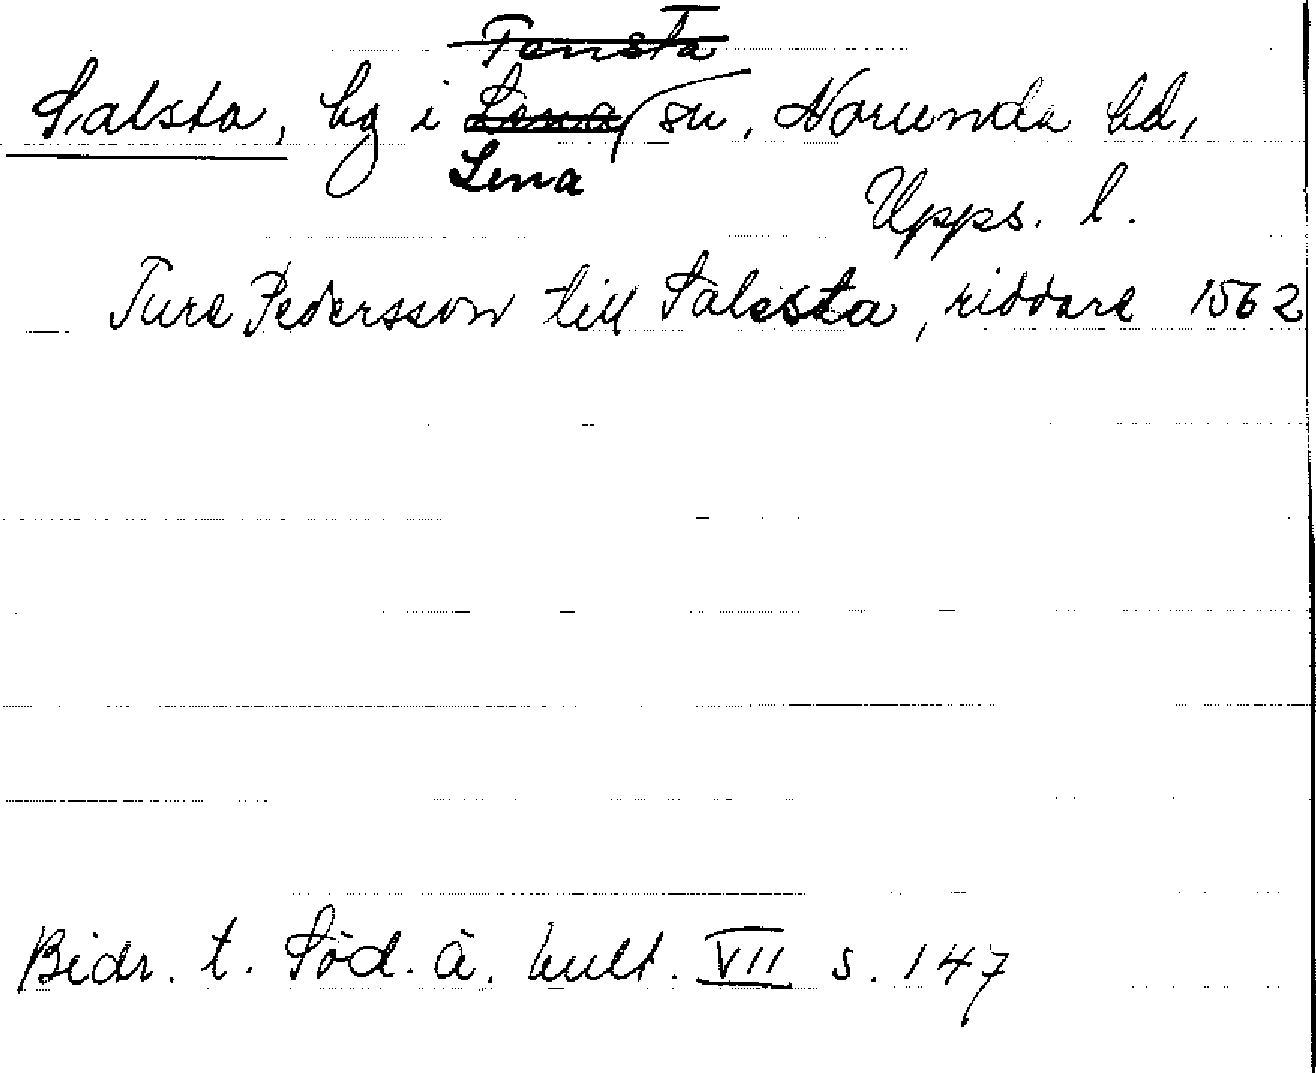 Tensta
Salsta, by i Lena sn, Norunda hd,
Lena
Upps. l.
Ture Pedersson till Salssta, riddare 1562
Bidr. t. Söd. ä. kult. VII s. 147